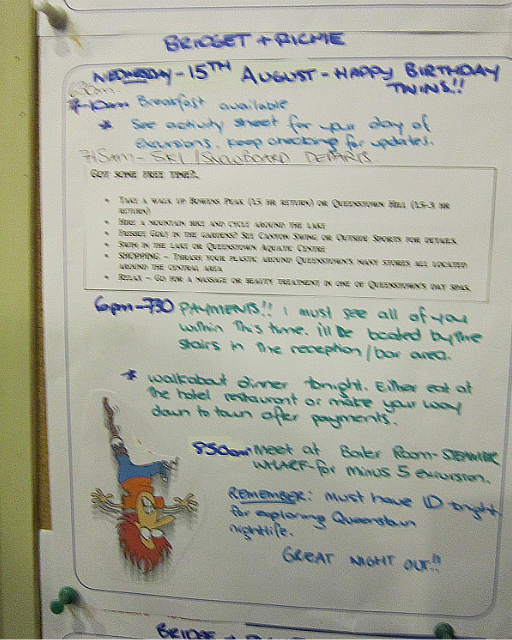 BRIDGET + RICHIE
WEDNESDAY - 15TH AUGUST - HAPPY BIRTHDAY
TWINS!!
630am.
7-10am Breakfast available
* See activity sheet for your day of
excursions. Keep checking for updates.
715am - SKI / SNOWBOARD DEPARTS.
GOT SOME FREE TIME?..
• TAKE A WALK UP BOWENS PEAK (1.5 HR RETURN) OR QUEENSTOWN HILL (1.5-3 HR
RETURN)
• HIRE A MOUNTAIN BIKE AND CYCLE AROUND THE LAKE
• FRISBEE GOLF IN THE GARDENS! SEE CANYON SWING OR OUTSIDE SPORTS FOR DETAILS.
• SWIM IN THE LAKE OR QUEENSTOWN AQUATIC CENTRE
• SHOPPING – THRASH YOUR PLASTIC AROUND QUEENSTOWN'S MANY STORES ALL LOCATED
AROUND THE CENTRAL AREA
• RELAX – GO FOR A MASSAGE OR BEAUTY TREATMENT IN ONE OF QUEENSTOWN'S DAY SPAS.
6pm-730 PAYMENTS!! I must see all of you
within this time. i'll be located by the
stairs in the reception/bar area.
* walkabout dinner tonight. Either eat at
the hotel restaurant or make your way
down to town after payments.
850am Meet at Boiler Room - STEAMER
WHARF - for minus 5 excursion.
REMEMBER: must have ID tonight
for exploring Queenstown
nightlife.
GREAT NIGHT OUT!!